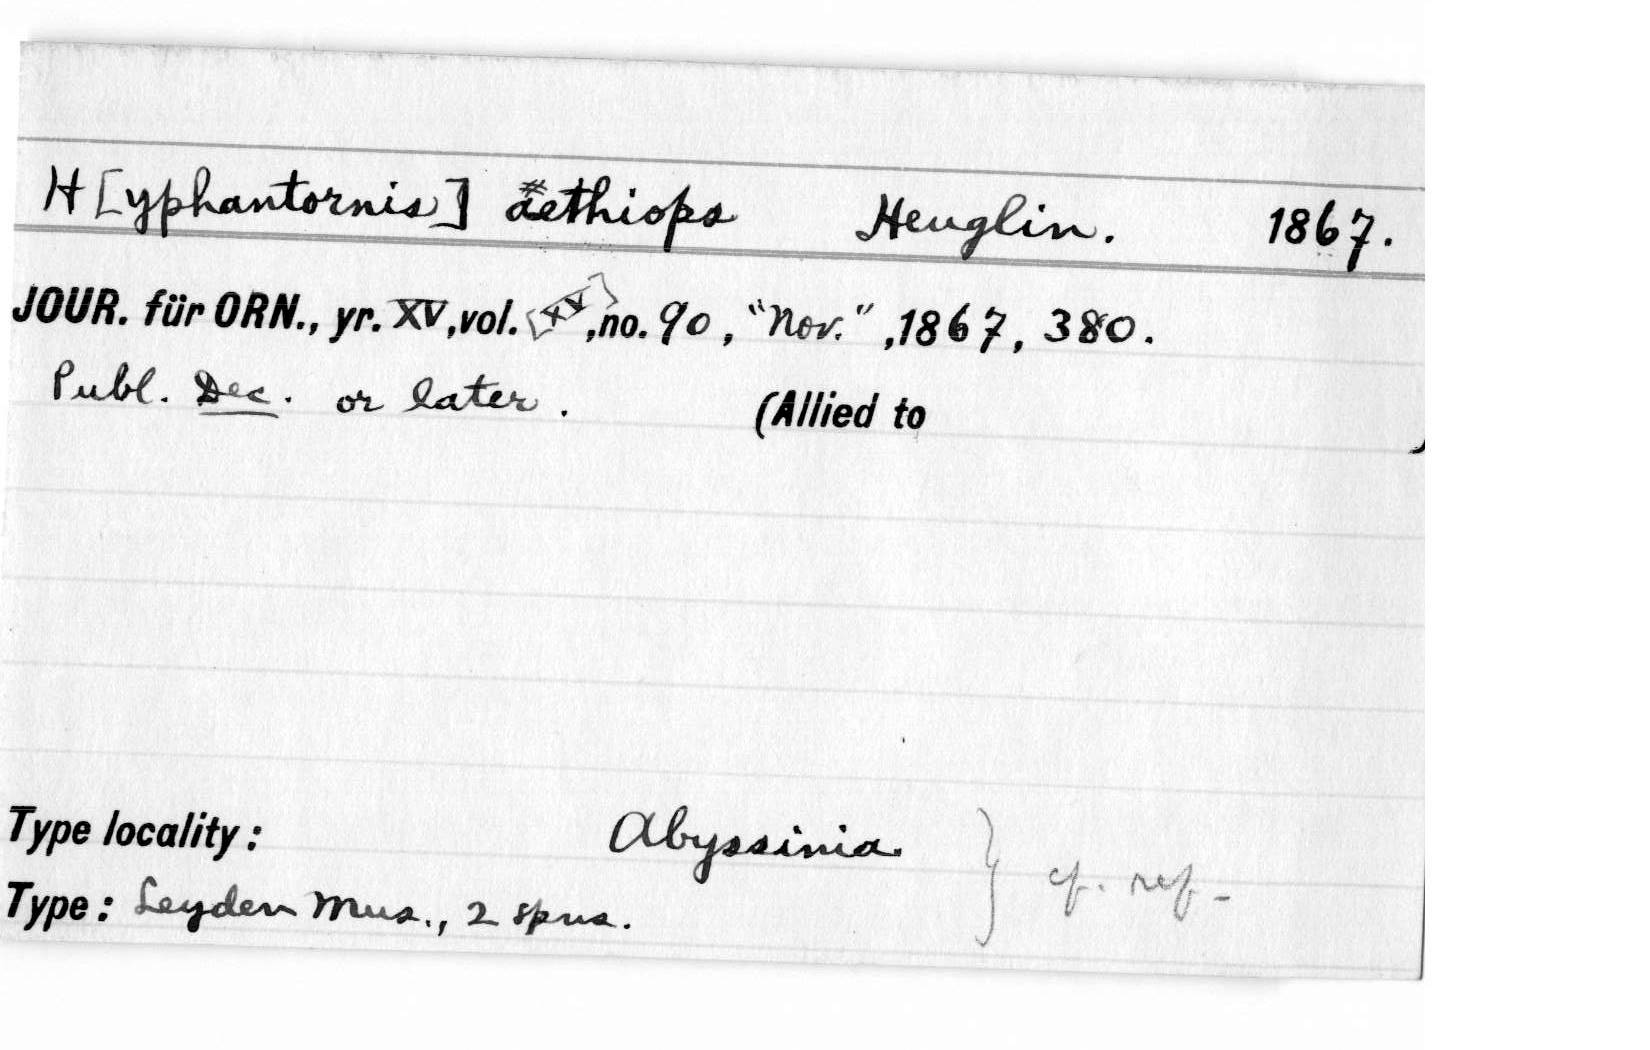 H[yphantornis] aethiops Heuglin. 1867.
JOUR. für ORN., yr. XV, vol. [XV], no. 90, "Nov.", 1867, 380.
Publ. Dec. or later. (Allied to )
Type locality: Abyssinia. } cf. ref.-
Type: Leyden Mus., 2 spns.